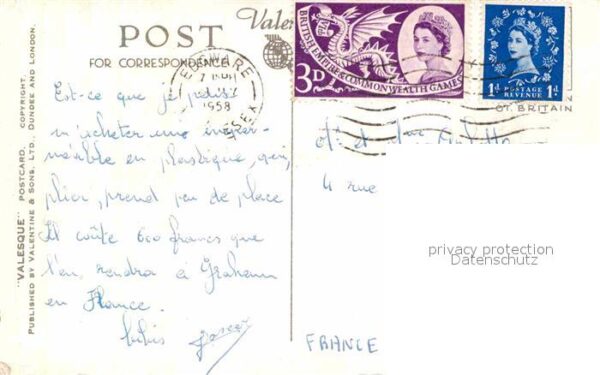 POST
Valen
FOR CORRESPONDENCE
"VALESQUE" POSTCARD. COPYRIGHT.
PUBLISHED BY VALENTINE & SONS, LTD., DUNDEE AND LONDON.
EDGWARE
1958
BRITISH EMPIRE & COMMONWEALTH GAMES
3D
1d POSTAGE REVENUE 1d
GT. BRITAIN
Est-ce que je puis
m'acheter une imper-
méable en plastique, qui,
plier, prend peu de place
Il coûte 600 francs que
l'on rendra à Graham
en France.
M et Mme
4 rue
FRANCE
privacy protection
Datenschutz